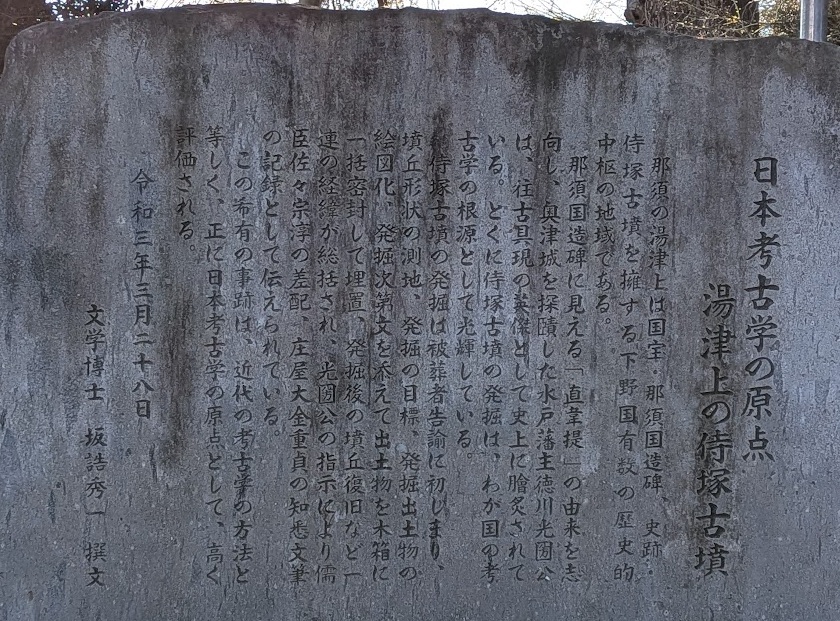 日本考古学の原点
湯津上の侍塚古墳
那須の湯津上は国宝・那須国造碑、史跡・
侍塚古墳を擁する下野国有数の歴史的
中枢の地域である。
那須国造碑に見える「直韋提」の由来を志
向し、奥津城を探賾した水戸藩主徳川光圀公
は、往古具現の英傑として史上に膾炙されて
いる。どくに侍塚古墳の発掘は、わが国の考
古学の根源として光輝している。
侍塚古墳の発掘は被葬者告諭に初しまり、
墳丘形状の測地、発掘の目標、発掘出土物の
絵図化、発掘次第文を添えて出土物を木箱に
一括密封して埋置、発掘後の墳丘復旧など一
連の経緯が総括され、光圀公の指示により儒
臣佐々宗淳の差配、庄屋大金重貞の知悉文筆
の記録として伝えられている。
この希有の事跡は、近代の考古学の方法と
等しく、正に日本考古学の原点として、高く
評価される。
令和三年三月二十八日
文学博士 坂詰秀一 撰文